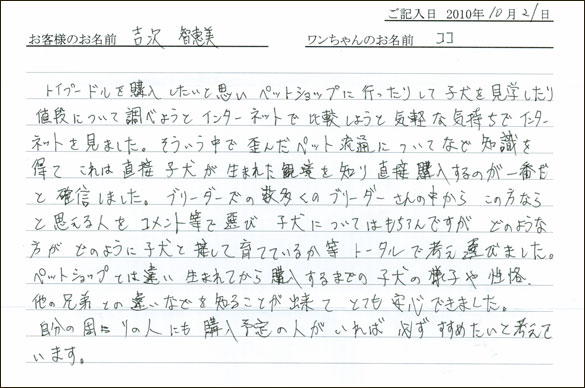 ご記入日 2010年10月21日
お客様のお名前 吉沢 智恵美 ワンちゃんのお名前 ココ
トイプードルを購入したいと思い ペットショップに行ったりして子犬を見学したり
値段について調べようとインターネットで比較しようと気軽な気持ちでインター
ネットを見ました。そういう中で歪んだペット流通についてなど知識を
得て これは直接子犬が生まれた環境を知り直接購入するのが一番だ
と確信しました。ブリーダーズの数多くのブリーダーさんの中から この方なら
と思える人をコメント等で選び 子犬についてはもちろんですが どのような
方が どのように子犬と接して育てているか等 トータルで考え選びました。
ペットショップとは違い 生まれてから購入するまでの子犬の様子や性格、
他の兄弟との違いなどを知ることが出来て とても安心できました。
自分の周りの人にも購入予定の人がいれば 必ずすすめたいと考えて
います。